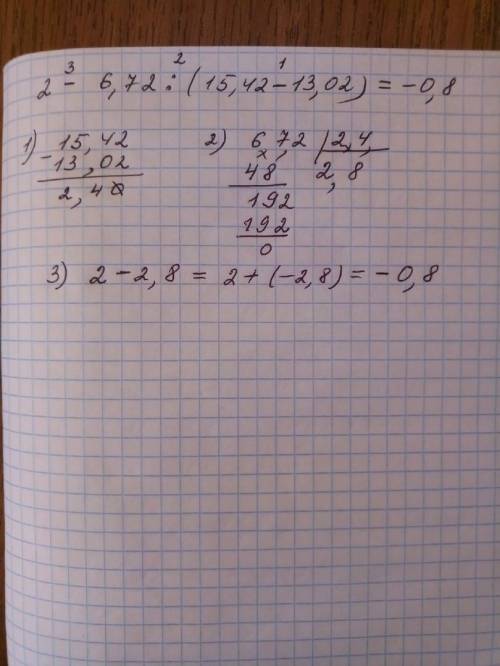 2 - 6,72 : (15,42 - 13,02) = -0,8
3 2 1
1) - 15,42
13,02
2,40
2) 6,72 | 2,4
48 2,8
192
192
0
3) 2 - 2,8 = 2 + (-2,8) = -0,8